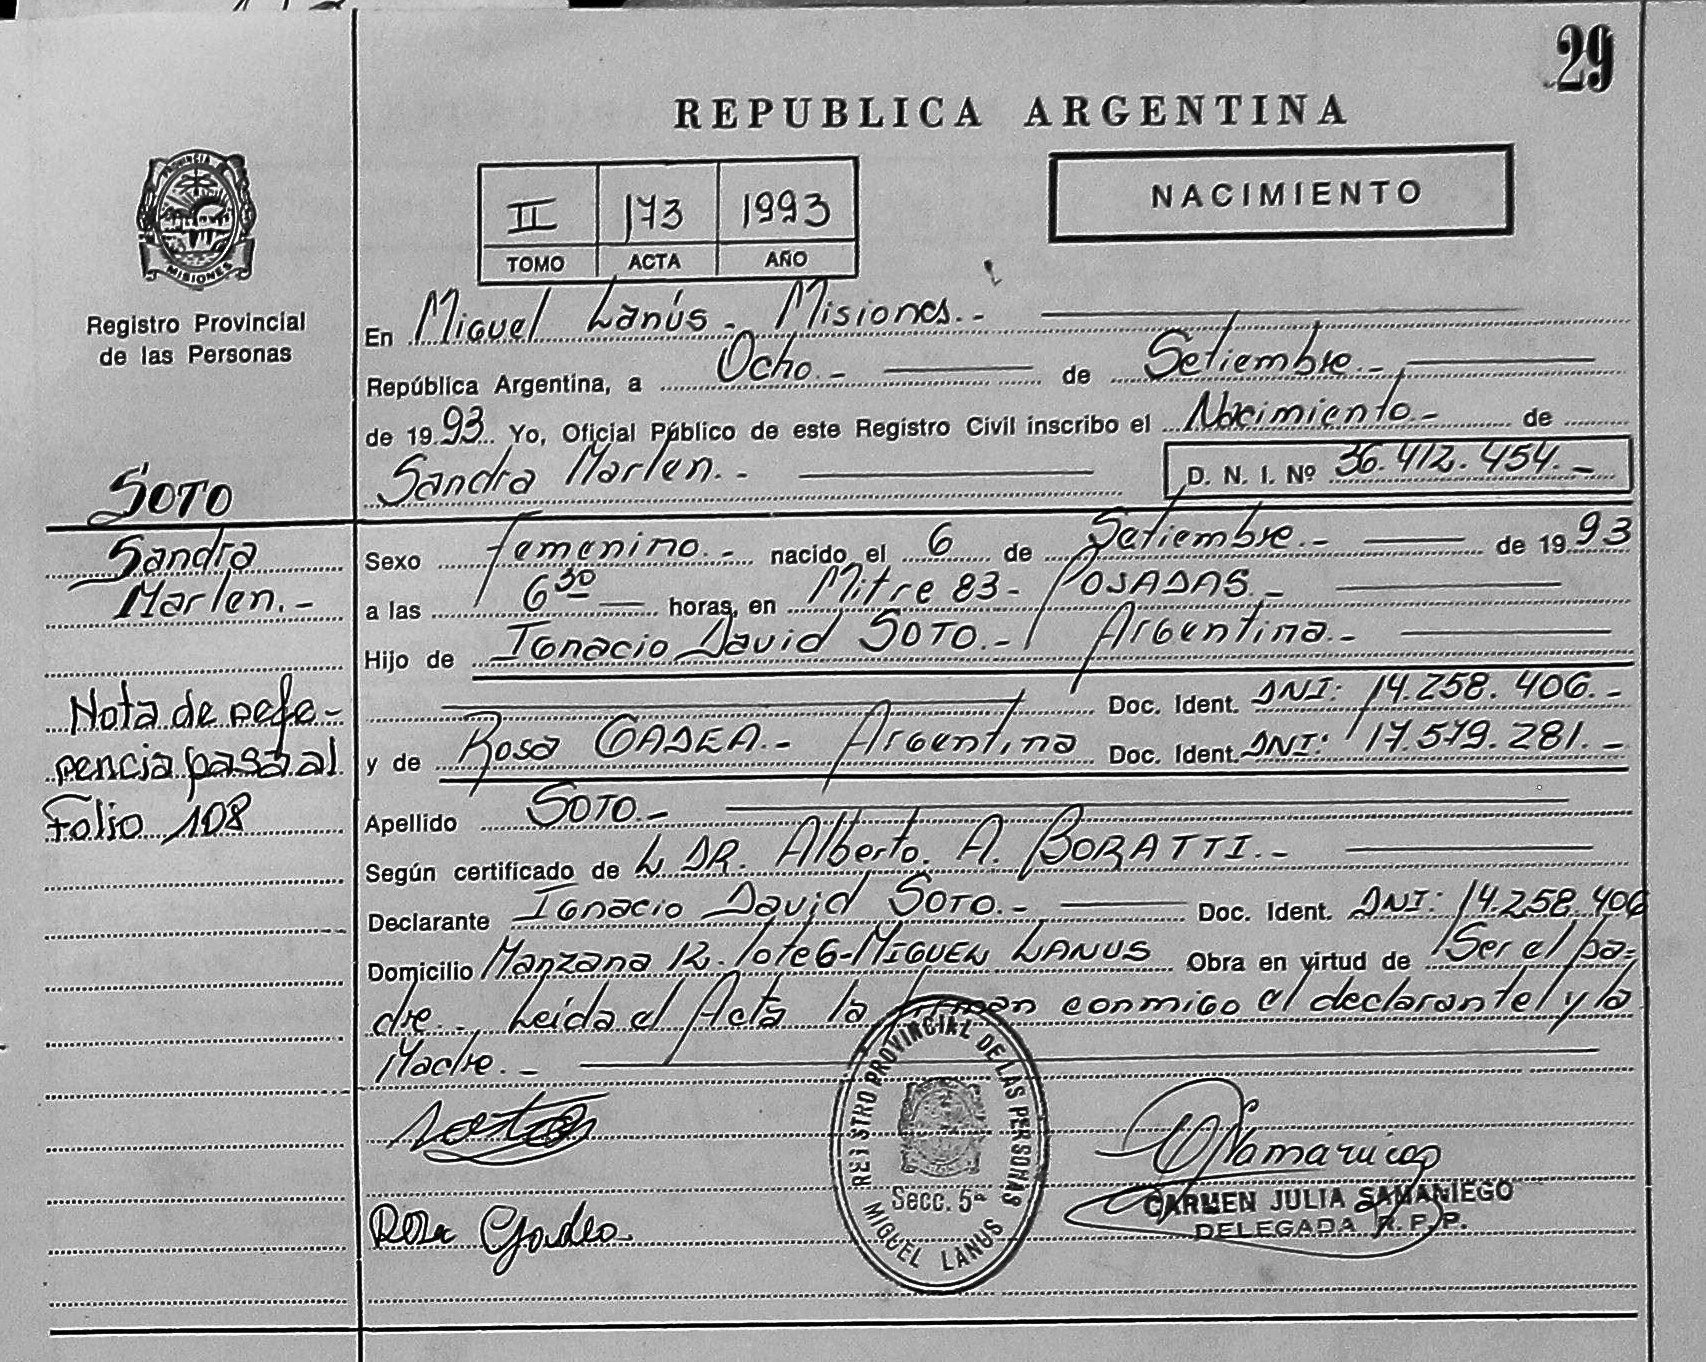 29
REPUBLICA ARGENTINA
PROVINCIA DE
MISIONES
Registro Provincial
de las Personas
II 173 1993
TOMO ACTA AÑO
NACIMIENTO
En Miguel Lanús - Misiones.-
República Argentina, a Ocho.- de Setiembre.-
de 1993 Yo, Oficial Público de este Registro Civil inscribo el Nacimiento.- de
Sandra Marlen.- D. N. I. Nº 36.412.454.-
SOTO
Sandra
Marlen.-
Sexo femenino.- nacido el 6 de Setiembre.- de 1993
a las 6 30 horas, en Mitre 83 - POSADAS.-
Hijo de Ignacio David SOTO.- Argentina.-
Doc. Ident. DNI: 14.258.406.-
y de Rosa GADEA.- Argentina Doc. Ident. DNI: 17.579.281.-
Nota de refe-
rencia pasa al
Folio 108
Apellido SOTO.-
Según certificado de L DR. Alberto. A. BORATTI.-
Declarante Ignacio David SOTO.- Doc. Ident. DNI: 14.258.406
Domicilio Manzana 12. lote 6 - MIGUEL LANUS Obra en virtud de Ser el pa-
dre.- Leida el Acta la firman conmigo el declarante y la
Madre.-
REGISTRO PROVINCIAL DE LAS PERSONAS
Secc. 5ª
MIGUEL LANUS
Rosa Gadea
CARMEN JULIA SAMANIEGO
DELEGADA R.P.P.